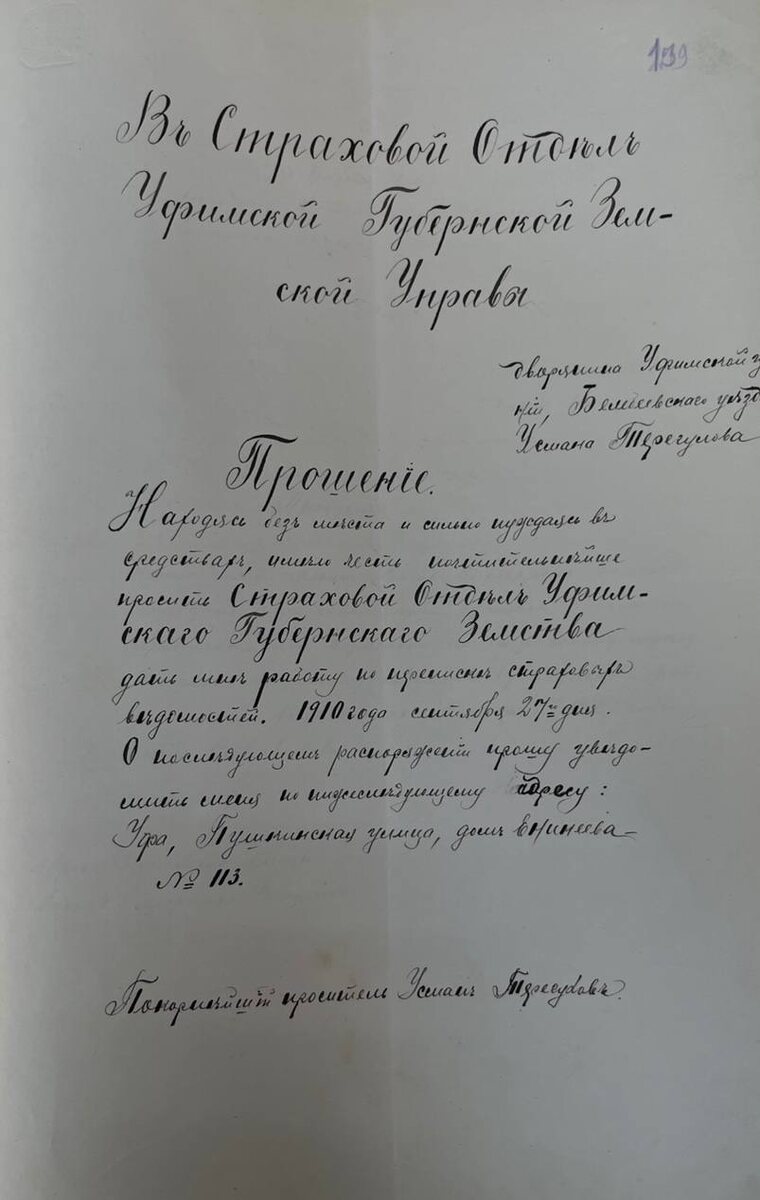 139
Въ Страховой Отдѣлъ
Уфимской Губернской Зем-
ской Управы
дворянина Уфимской гу
ніи, Белебеевскаго уѣзд
Усмана Терегулова
Прошеніе.
Находясь безъ мѣста и сильно нуждаясь въ
средствахъ, имѣю честь почтительнѣйше
просить Страховой Отдѣлъ Уфим-
скаго Губернскаго Земства
дать мнѣ работу по перепискѣ страховыхъ
вѣдомостей. 1910 года сентября 27го дня.
О послѣдующемъ распоряженіи прошу увѣдо-
мить меня по нижеслѣдующему адресу:
Уфа, Пушкинская улица, домъ Еникеева
№ 113.
Покорнѣйшій проситель Усманъ Терегуловъ.